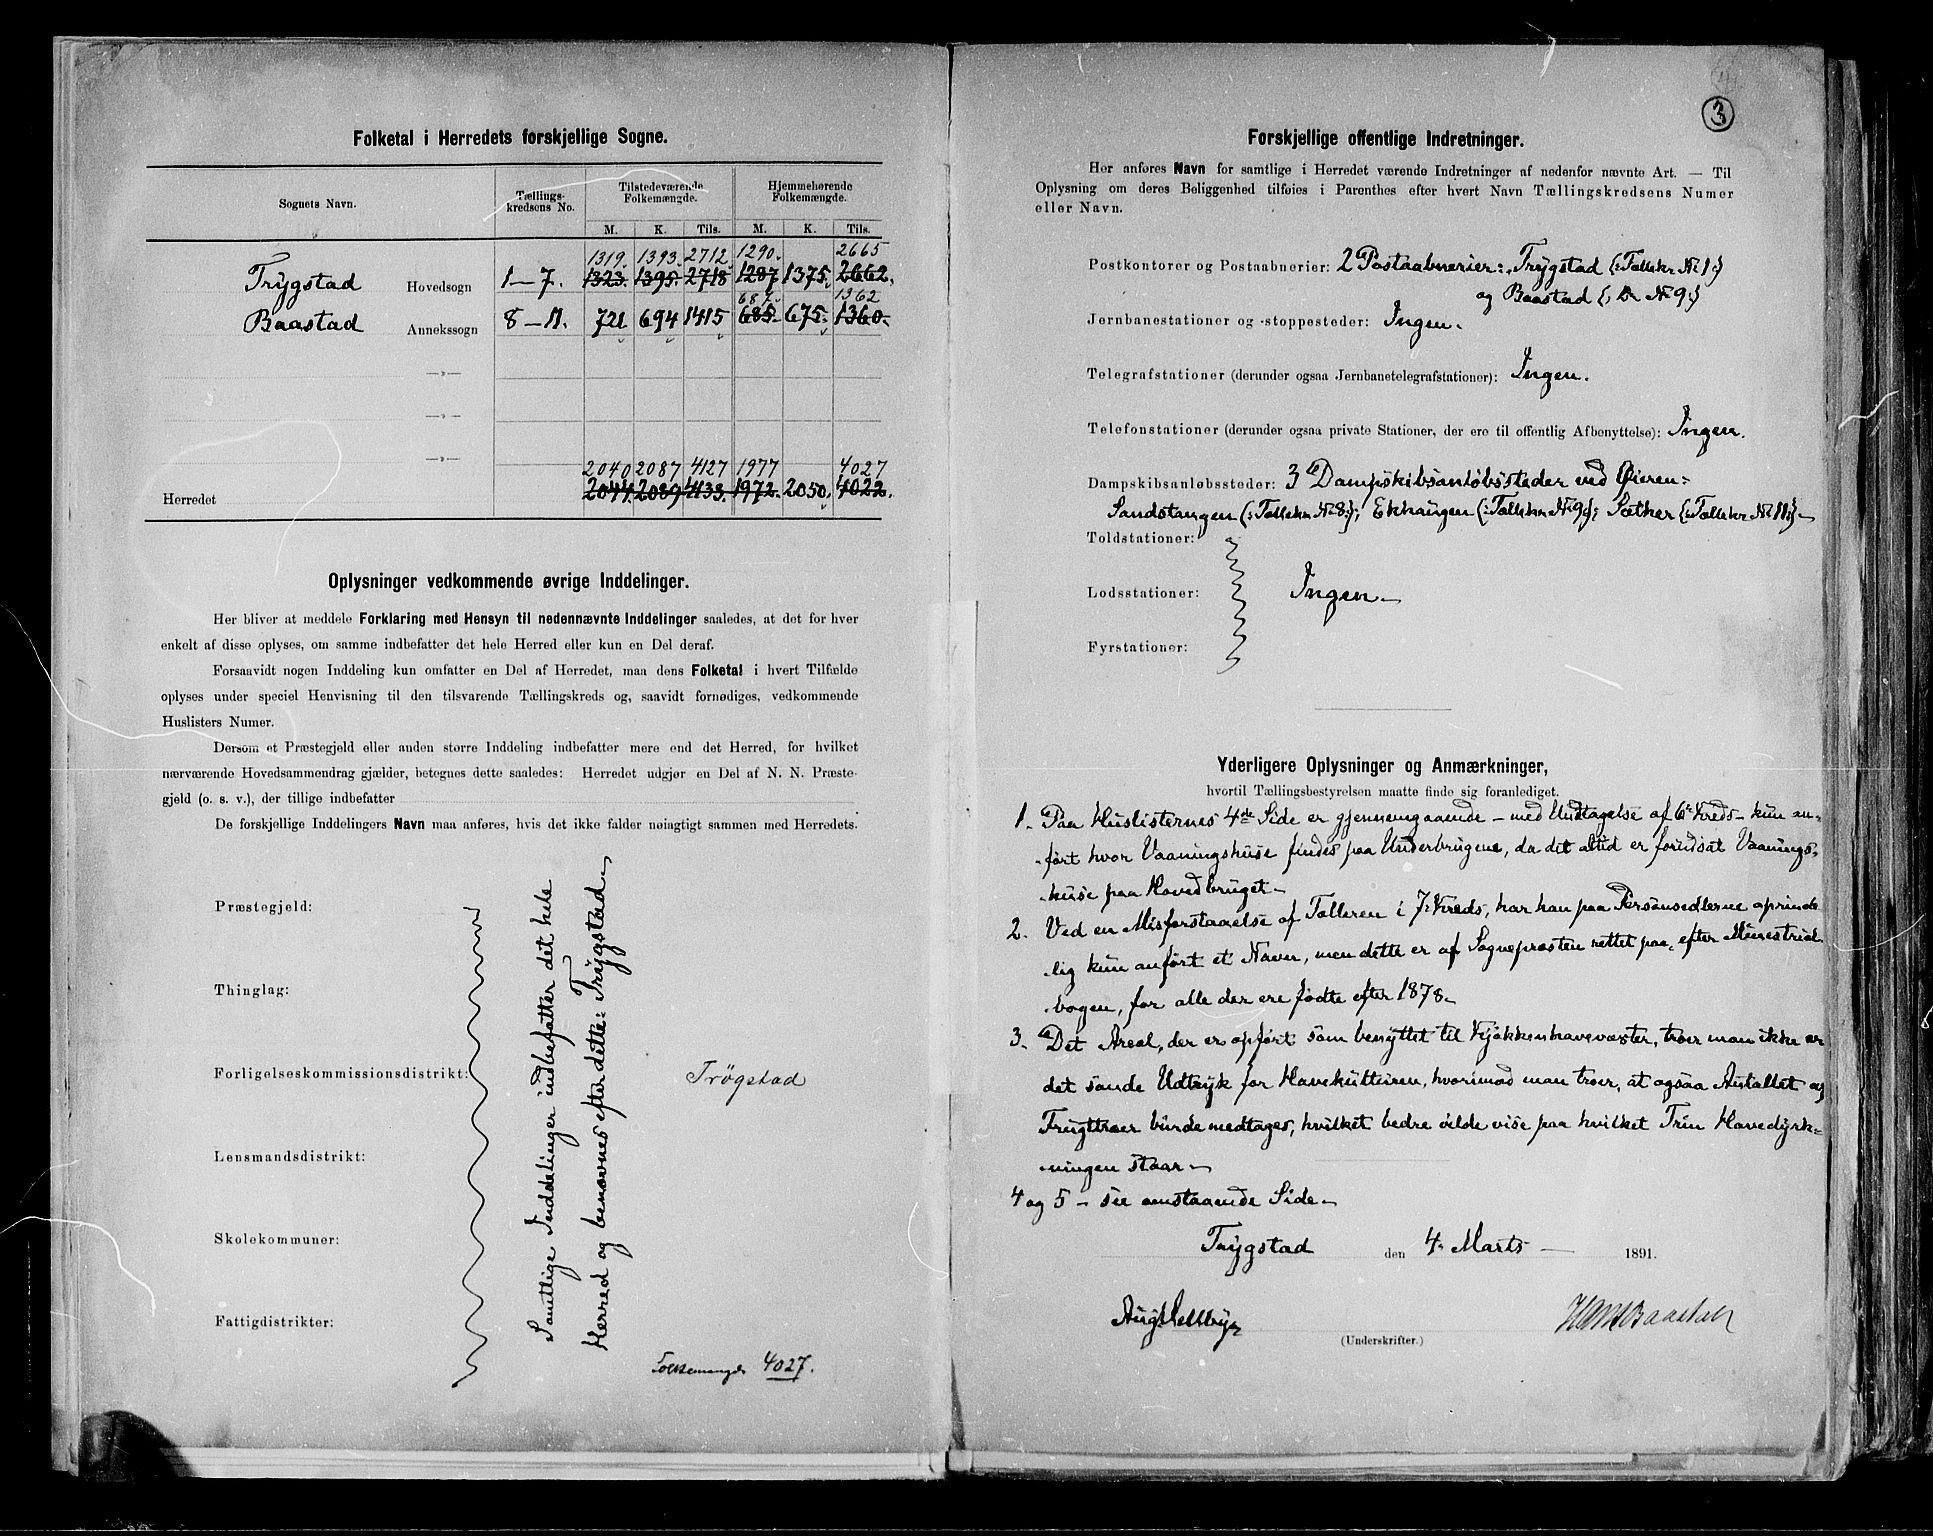 Folketal i Herredets forskjellige Sogne.
Sognets Navn. Tællings-kredsens No. Tilstedeværende Folkemængde. Hjemmehørende Folkemængde.
M. K. Tils. M. K. Tils.
1319. 1393. 2712. 1290. 2665
Trygstad Hovedsogn 1-7. 1323. 1395. 2718 1287 1375. 2662.
687. 1362
Baastad Annekssogn 8-11. 721 694 1415 685. 675. 1360.
—»—
—»—
—»—
2040 2087 4127 1977 4027
Herredet 2044. 2089 4133. 1972. 2050. 4022.
Oplysninger vedkommende øvrige Inddelinger.
Her bliver at meddele Forklaring med Hensyn til nedennævnte Inddelinger saaledes, at det for hver
enkelt af disse oplyses, om samme indbefatter det hele Herred eller kun en Del deraf.
Forsaavidt nogen Inddeling kun omfatter en Del af Herredet, maa dens Folketal i hvert Tilfælde
oplyses under speciel Henvisning til den tilsvarende Tællingskreds og, saavidt fornødiges, vedkommende
Huslisters Numer.
Dersom et Præstegjeld eller anden større Inddeling indbefatter mere end det Herred, for hvilket
nærværende Hovedsammendrag gjælder, betegnes dette saaledes: Herredet udgjør en Del af N. N. Præste-
gjeld (o. s. v.), der tillige indbefatter
De forskjellige Inddelingers Navn maa anføres, hvis det ikke falder nøiagtigt sammen med Herredets.
Præstegjeld:
Thinglag:
Forligelseskommissionsdistrikt:
Lensmandsdistrikt:
Skolekommuner:
Fattigdistrikter:
Samtlige Inddelinger indbefatter det hele
Herred og benævnes efter dette: Trygstad.
Trøgstad
Folkemængde 4027.
3
Forskjellige offentlige Indretninger.
Her anføres Navn for samtlige i Herredet værende Indretninger af nedenfor nævnte Art. — Til
Oplysning om deres Beliggenhed tilføies i Parenthes efter hvert Navn Tællingskredsens Numer
eller Navn.
Postkontorer og Postaabnerier: 2 Postaabnerier: Trygstad (: Tællekr. Nr 1 :)
og Baastad (: Do Nr 9 :)
Jernbanestationer og -stoppesteder: Ingen.
Telegrafstationer (derunder ogsaa Jernbanetelegrafstationer): Ingen.
Telefonstationer (derunder ogsaa private Stationer, der ere til offentlig Afbenyttelse): Ingen.
Dampskibsanløbssteder: 3 Dampskibsanløbssteder ved Øieren:
Sandstangen (: Tællekr Nr 8 :); Ekhaugen (: Tællekr Nr 9 :); Sæther (: Tællekr Nr 11 :)
Toldstationer:
Lodsstationer: Ingen
Fyrstationer:
Yderligere Oplysninger og Anmærkninger,
hvortil Tællingsbestyrelsen maatte finde sig foranlediget.
1. Paa Huslisternes 4de Side er gjennemgaaende - med Undtagelse af 6te Kreds - kun an-
ført hvor Vaaningshuse findes paa Underbrugene, da det altid er forudsat Vaanings-
huse paa Hovedbruget-
2. Ved en Misforstaaelse af Tælleren i 7. Kreds, har han paa Personsedlerne oprinde
lig kun anført et Navn, men dette er af Sognepræsten rettet paa, efter Ministrial
bogen, for alle der ere fødte efter 1878-
3. Det Areal, der er opført som benyttet til Kjøkkenhavevæxter, troer man ikke er
det sande Udtryk for Havekulturen, hvorimod man troer, at ogsaa Antallet af
Frugttræer burde medtages, hvilket bedre vilde vise paa hvilket Trin Havedyrk-
ningen staar-
4 og 5 - see omstaaende Side-
Trygstad den 4. Marts 1891.
(Underskrifter.)